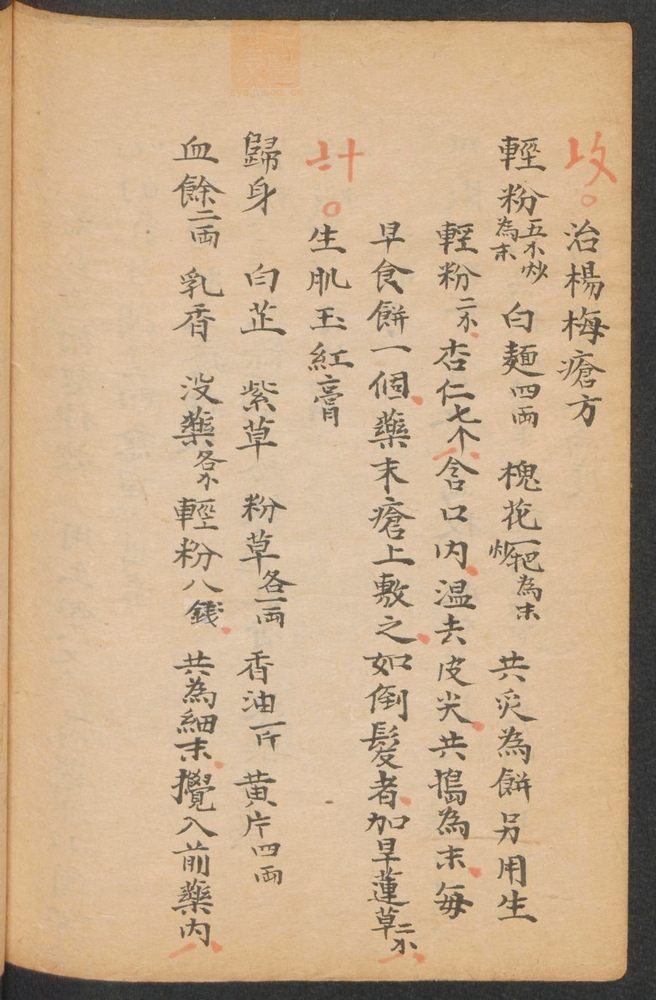 攻。治楊梅瘡方
輕粉五小炒為末 白麵四兩 槐花一把炒為末 共炙為餅另用生
輕粉二小杏仁七个含口内温去皮尖共搗為末每
早食餅一個藥末瘡上敷之如倒髮者加旱蓮草二小
生肌玉紅膏
歸身 白芷 紫草 粉草各一兩 香油一斤 黄片四兩
血餘二兩 乳香 没藥各小輕粉八錢 共為細末攪入前藥内